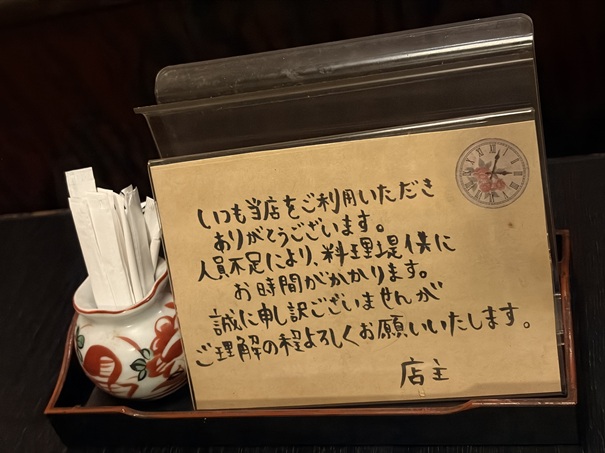 いつも当店をご利用いただき
ありがとうございます。
人員不足により、料理提供に
お時間がかかります。
誠に申し訳ございませんが
ご理解の程よろしくお願いいたします。
店主